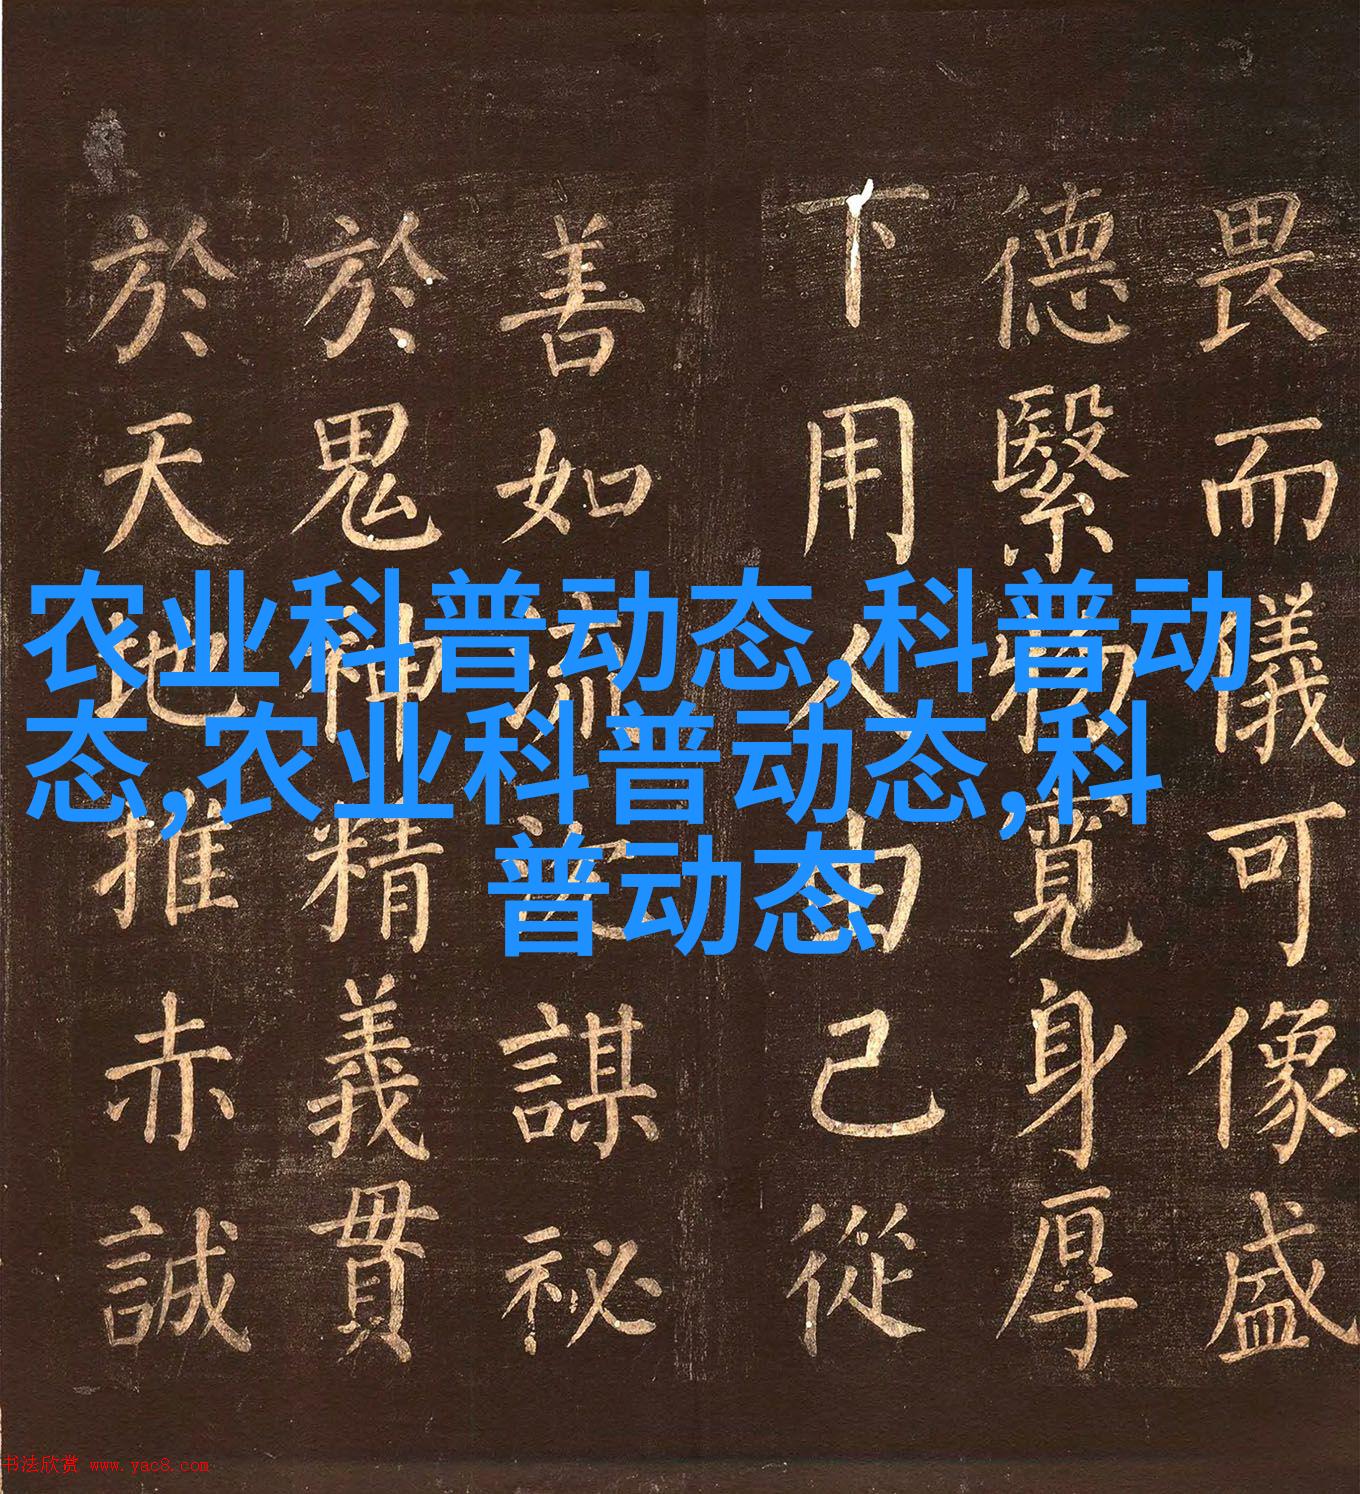 畏而儀可像盛
德繄物寬身厚
下用人由己從
善如流謀祕
於鬼神精義貫
於天地推赤誠
农业科普动态,科普动
态,农业科普动态,科
普动态
书法欣赏 www.yac8.com